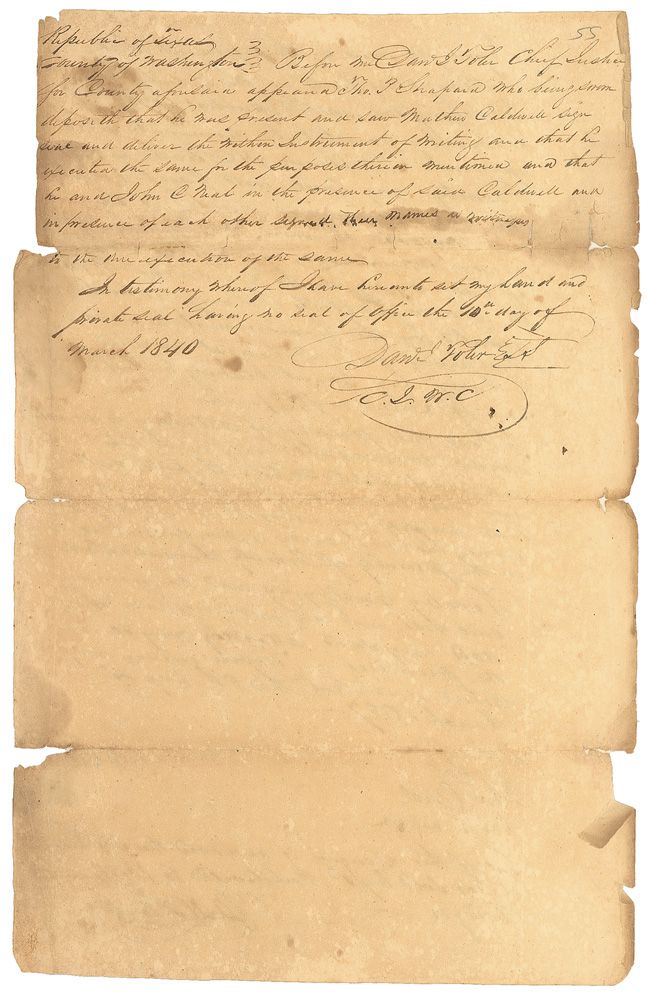 55
Republic of Texas
County of Washington } Before me Danl J Toler Chief Justice
for County aforesaid appeard Tho. P Shapard who being sworn
deposith that he was present and saw Mathew Caldwell sign
seal and deliver the within Instrument of writing and that he
executed the same for the purposes therein mentioned and that
he and John C Neal in the presence of said Caldwell and
in presence of each other signed their names as witnesses
to the due execution of the same
In testimony whereof I have hereunto set my hand and
private seal having no seal of Office the 10th day of
March 1840
Danl J Toler
C. J. W. C